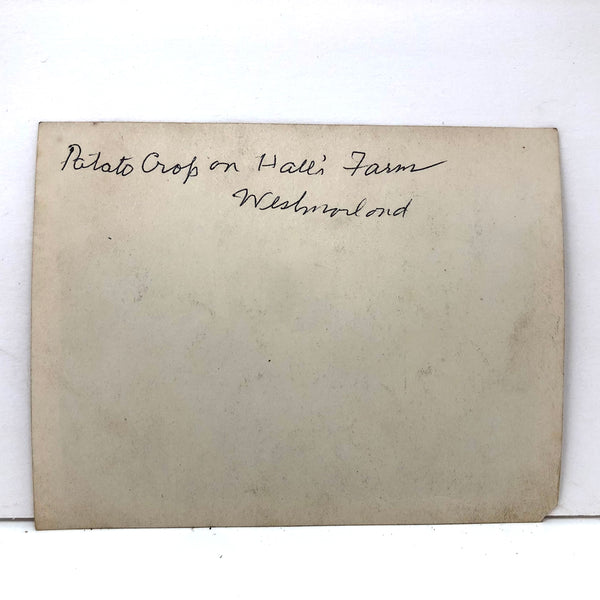 Potato Crop on Hall's Farm
Westmorland